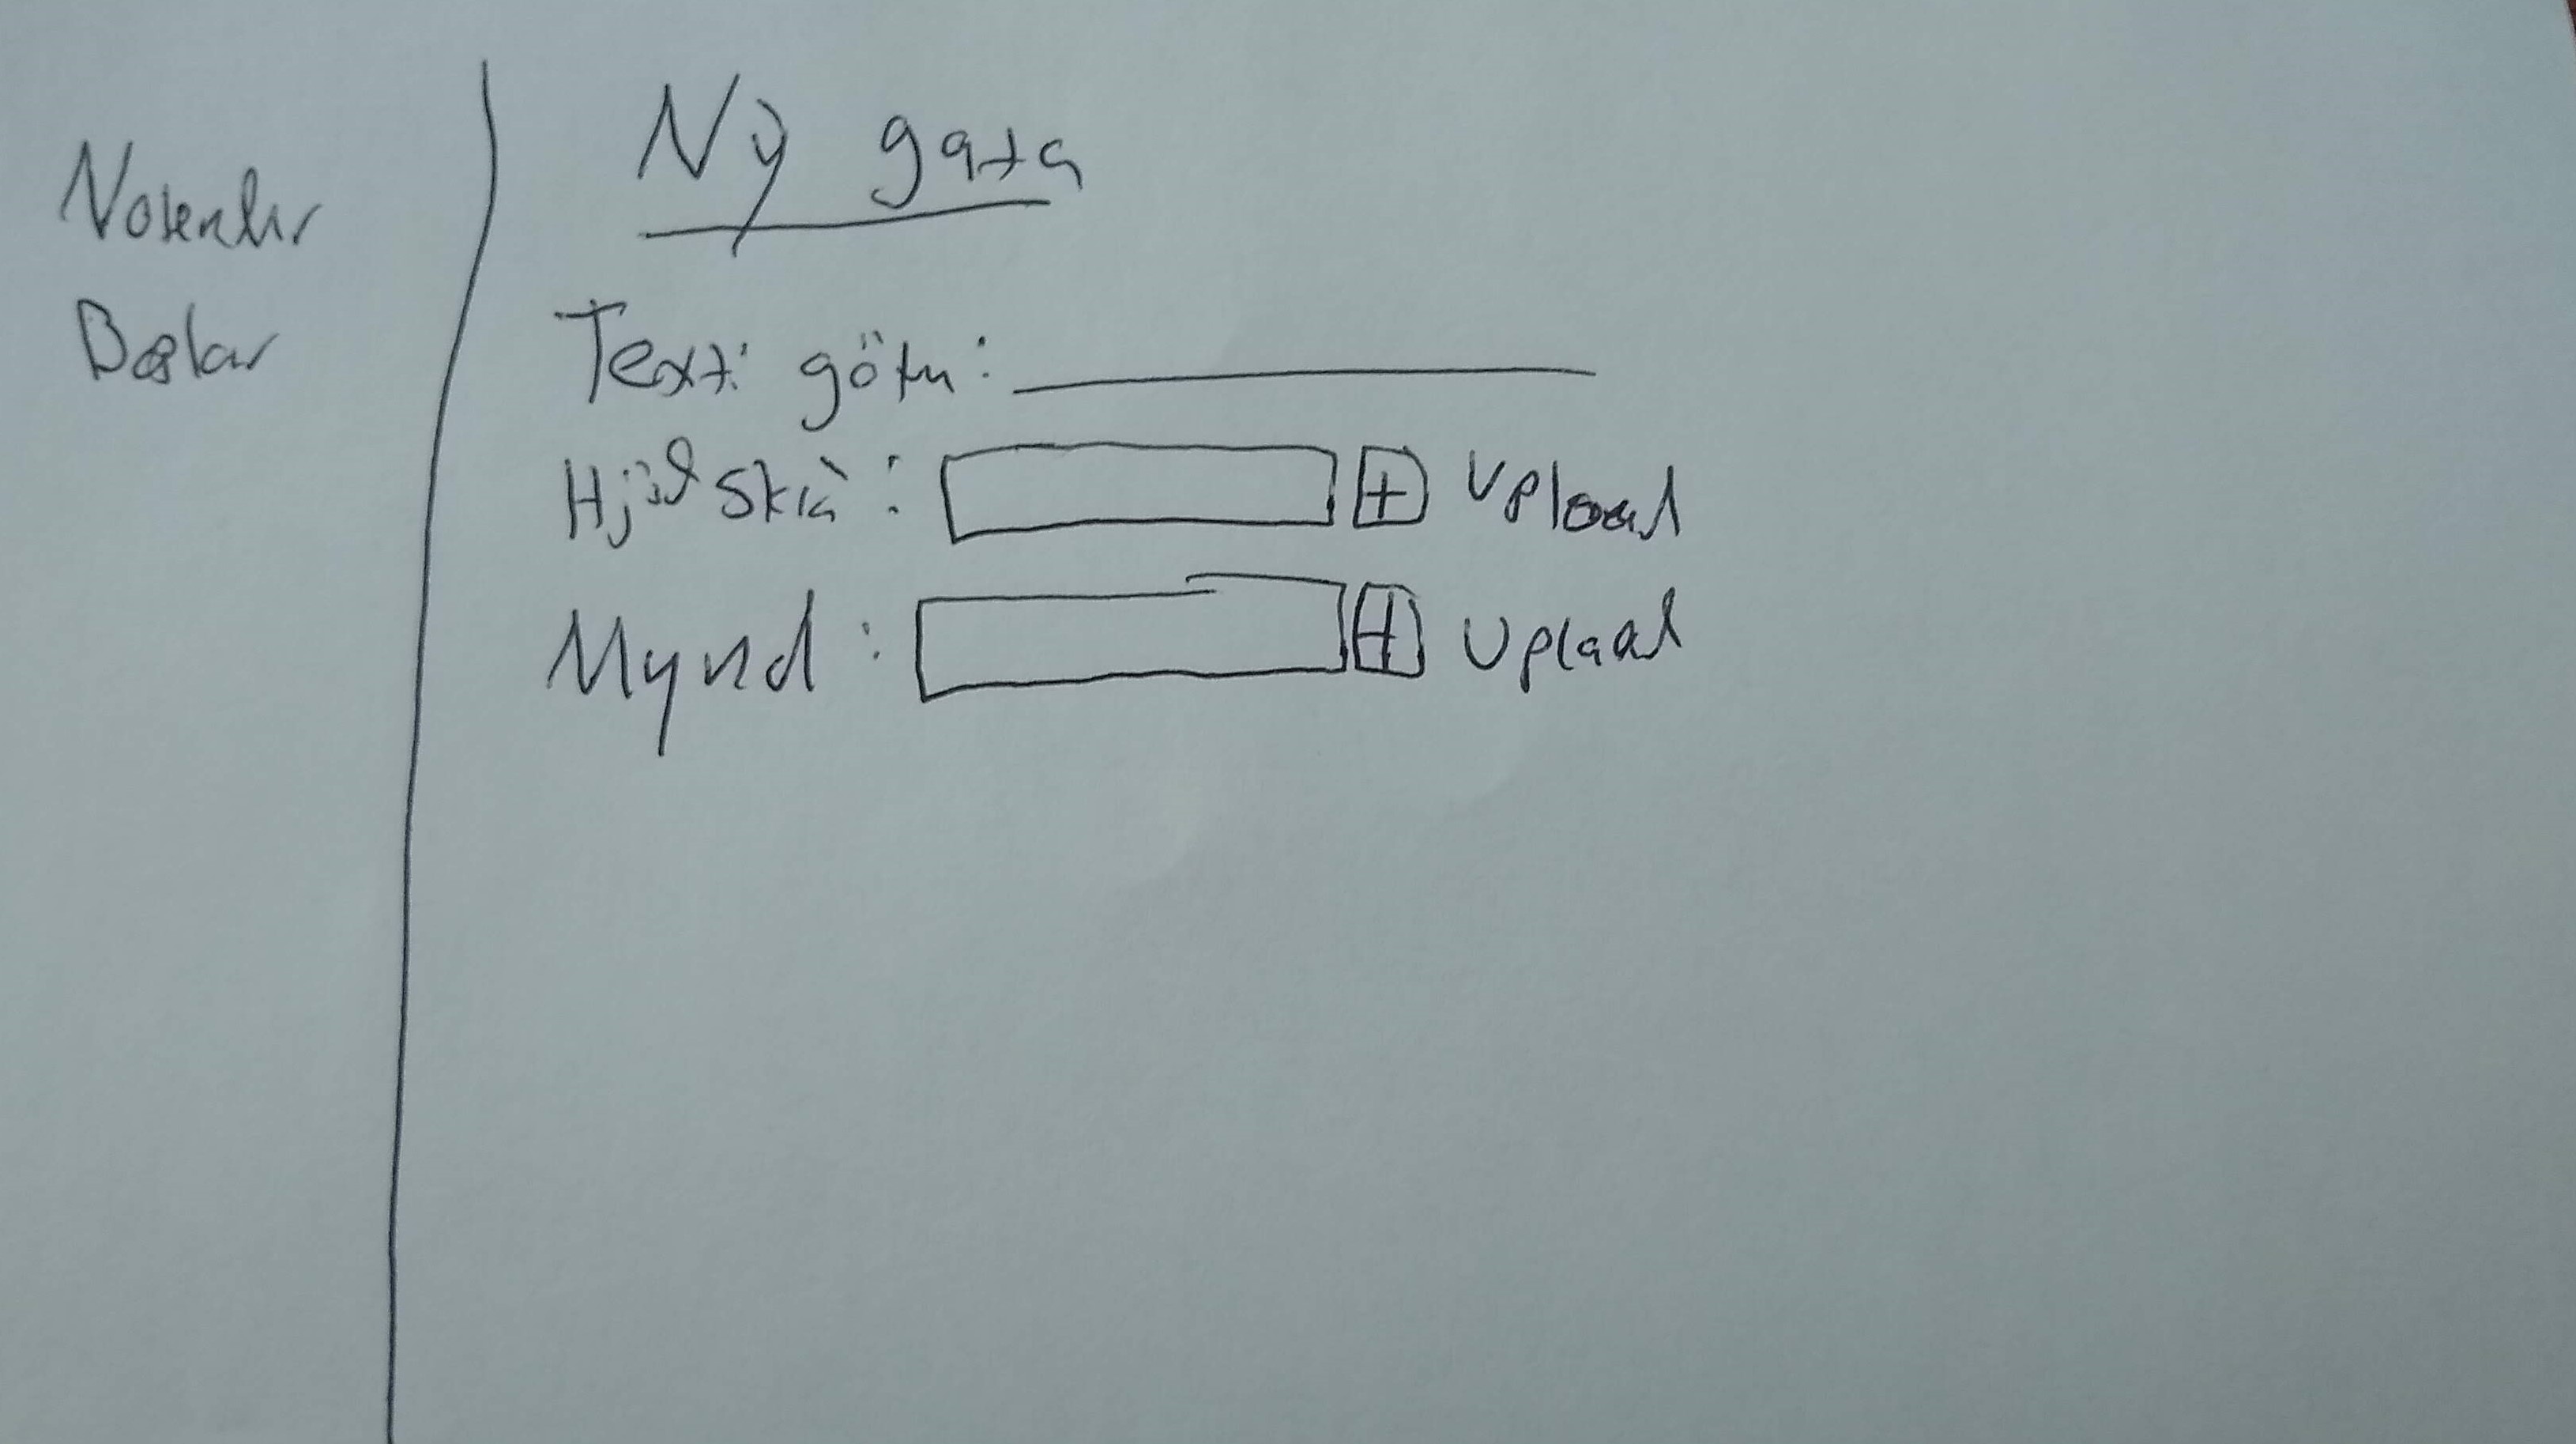 Notendur
Ný gata
Texti götu:
Hjól skrá: + Upload
Mynd: + Upload